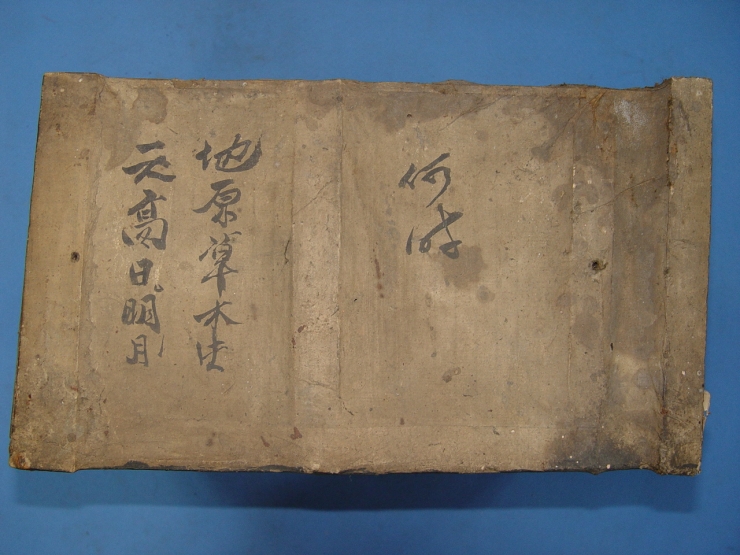 何時
地原草木生
天高日明月